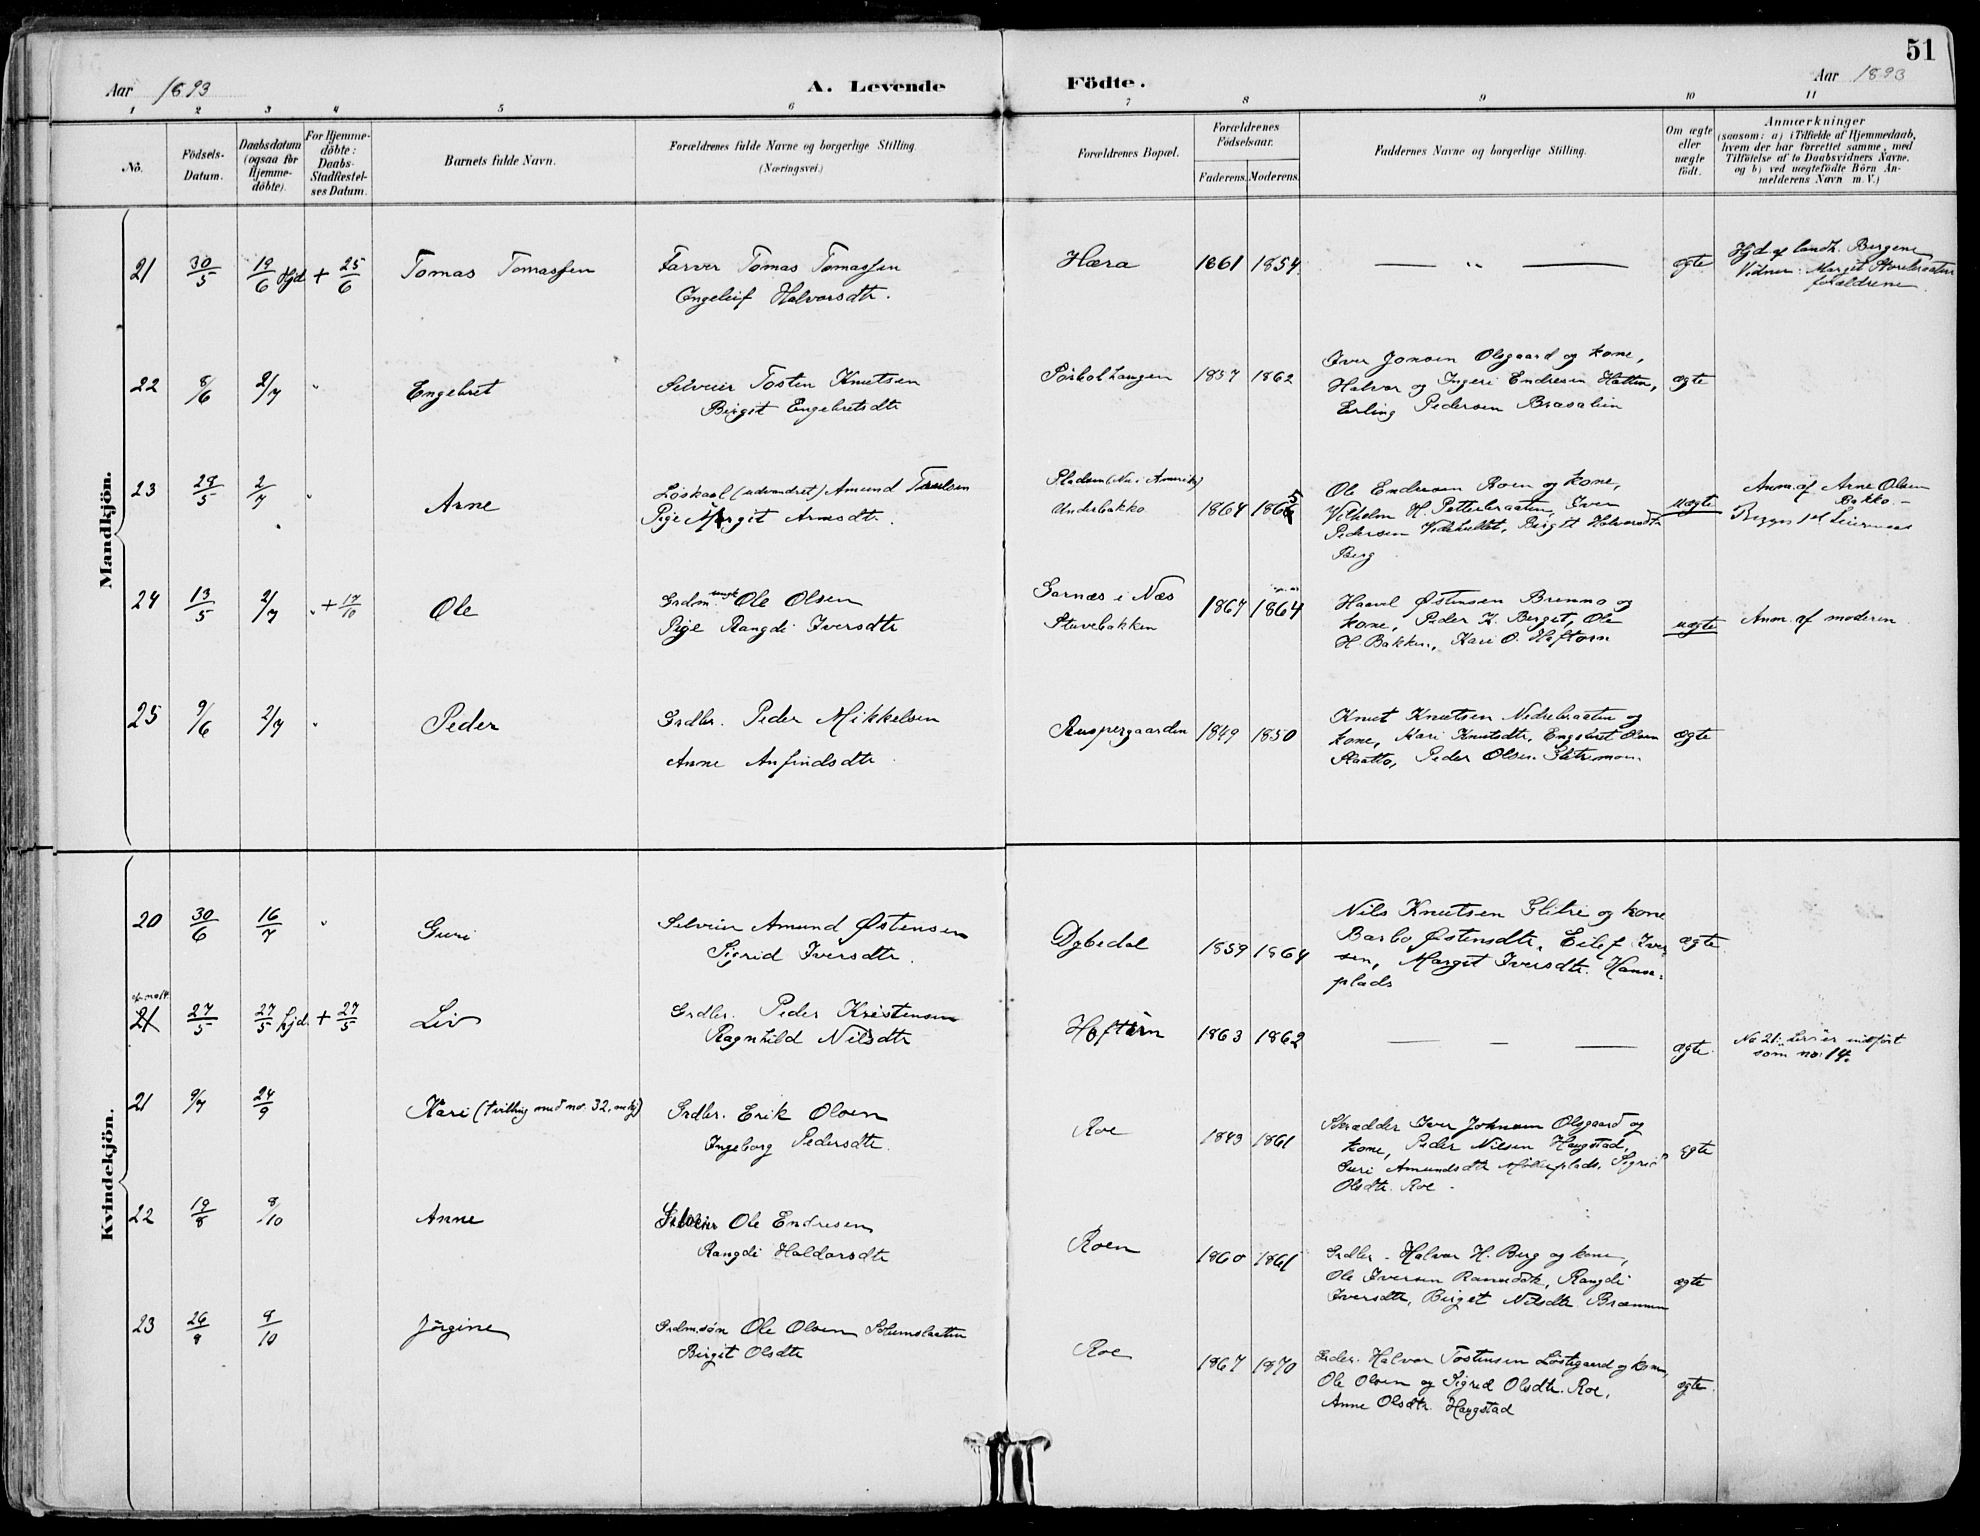 51
Aar 1893
A. Levende Födte.
Aar 1893
1 2 3 4 5 6 7 8 9 10 11
No.
Födsels-Datum.
Daabsdatum (ogsaa for Hjemme-döbte).
For Hjemme-döbte: Daabs-Stadfæstel-ses Datum.
Barnets fulde Navn.
Forældrenes fulde Navne og borgerlige Stilling.
(Næringsvei.)
Forældrenes Bopæl.
Forældrenes Födselsaar.
Faderens. Moderens.
Faddernes Navne og borgerlige Stilling.
Om ægte eller uægte födt.
Anmærkninger
(saasom: a) i Tilfælde af Hjemmedaab,
hvem der har forrettet samme, med
Tilföielse af to Daabsvidners Navne.
og b) ved uægtefödte Börn An-
melderens Navn m. V.)
Mandkjön.
21 30/5 19/6 Hjd + 25/6 Tomas Tomassen
Farver Tomas Tomassen
Ingeleif Halvorsdtr.
Hæra 1861 1854 — " — ægte
Hjd af landh. Bergene
Vidner: Margit Storebraaten
forældrene
22 8/6 2/7 " Engebret
Selveier Tosten Knutsen
Birgit Engebretsdtr
1857 1862
Iver Jonsen Olsgaard og kone,
Halvor og Ingeri Endresen Hatten,
Erling Pedersen Brasalien
ægte
23 29/5 2/7 " Arne
Löskarl (udvandret) Amund Truelsen
Pige Margit Arnesdtr.
Pladsen (Nu i Amerika)
Underbakko 1864 1865
Ole Endresen Roen og kone,
Vilhelm H. Petterbraaten, Iver
Pedersen Videhultet, Birgit Halvorsdtr
Berg
uægte
Anm. af Arne Olsen
Bakko.
Begges 1ste Leiermaal
24 13/5 2/7 " + 17/10 Ole
Grdm. ungk. Ole Olsen
Pige Rangdi Iversdtr
Garnæs i Næs
Stuvebakken
1867 1864
Haavel Østensen Brenno og
kone, Peder K. Berget, Ole
H. Bakken, Kari O. Haftorn
uægte
Anm. af moderen
25 9/6 2/7 " Peder
Grdbr. Peder Mikkelsen
Anne Anfindsdtr
Ruspergaarden 1849 1850
Knut Knutsen Nedrebraaten og
kone, Kari Knutsdtr, Engebret Olsen
Slaatto, Peder Olsen
ægte
Kvindekjön.
20 30/6 16/7 " Guri
Selveier Amund Østensen
Sigrid Iversdtr.
Dybedal 1859 1864
Nils Knutsen Glitre og kone
Barbo Østensdtr, Eilef Iver-
sen, Margit Iversdtr. Hanse-
plads
ægte
21 27/5 27/5 hjd. + 27/5 Liv
Grdbr. Peder Kristensen
Ragnhild Nilsdtr
Haftorn 1863 1862 — — — ægte.
No 21: Liv er indfört
som no: 14.
21 9/7 24/9 Kari (tvilling med no. 32, mkj)
Grdbr. Erik Olsen
Ingeborg Pedersdtr.
Roe 1843 1861
Skrædder Iver Johnsen Olsgaard og
kone, Peder Nilsen Haugstad,
Guri Amundsdtr Mölleplads, Sigrid
Olsdtr. Roe.
ægte
22 19/8 8/10 Anne
Selveier Ole Endresen
Rangdi Haldorsdtr
Roen 1860 1861
Grdbr. Halvor H. Berg og kone,
Ole Iversen, Rangdi
Iversdtr, Birgit Nilsdtr
ægte
23 26/8 8/10 Jörgine
Grdm.sön Ole Olsen
Birgit Olsdtr
Roe 1867 1870
Grdbr. Halvor Tostensen Löstegaard og kone,
Ole Olsen og Sigrid Olsdtr. Roe,
Anne Olsdtr. Haugstad
ægte.